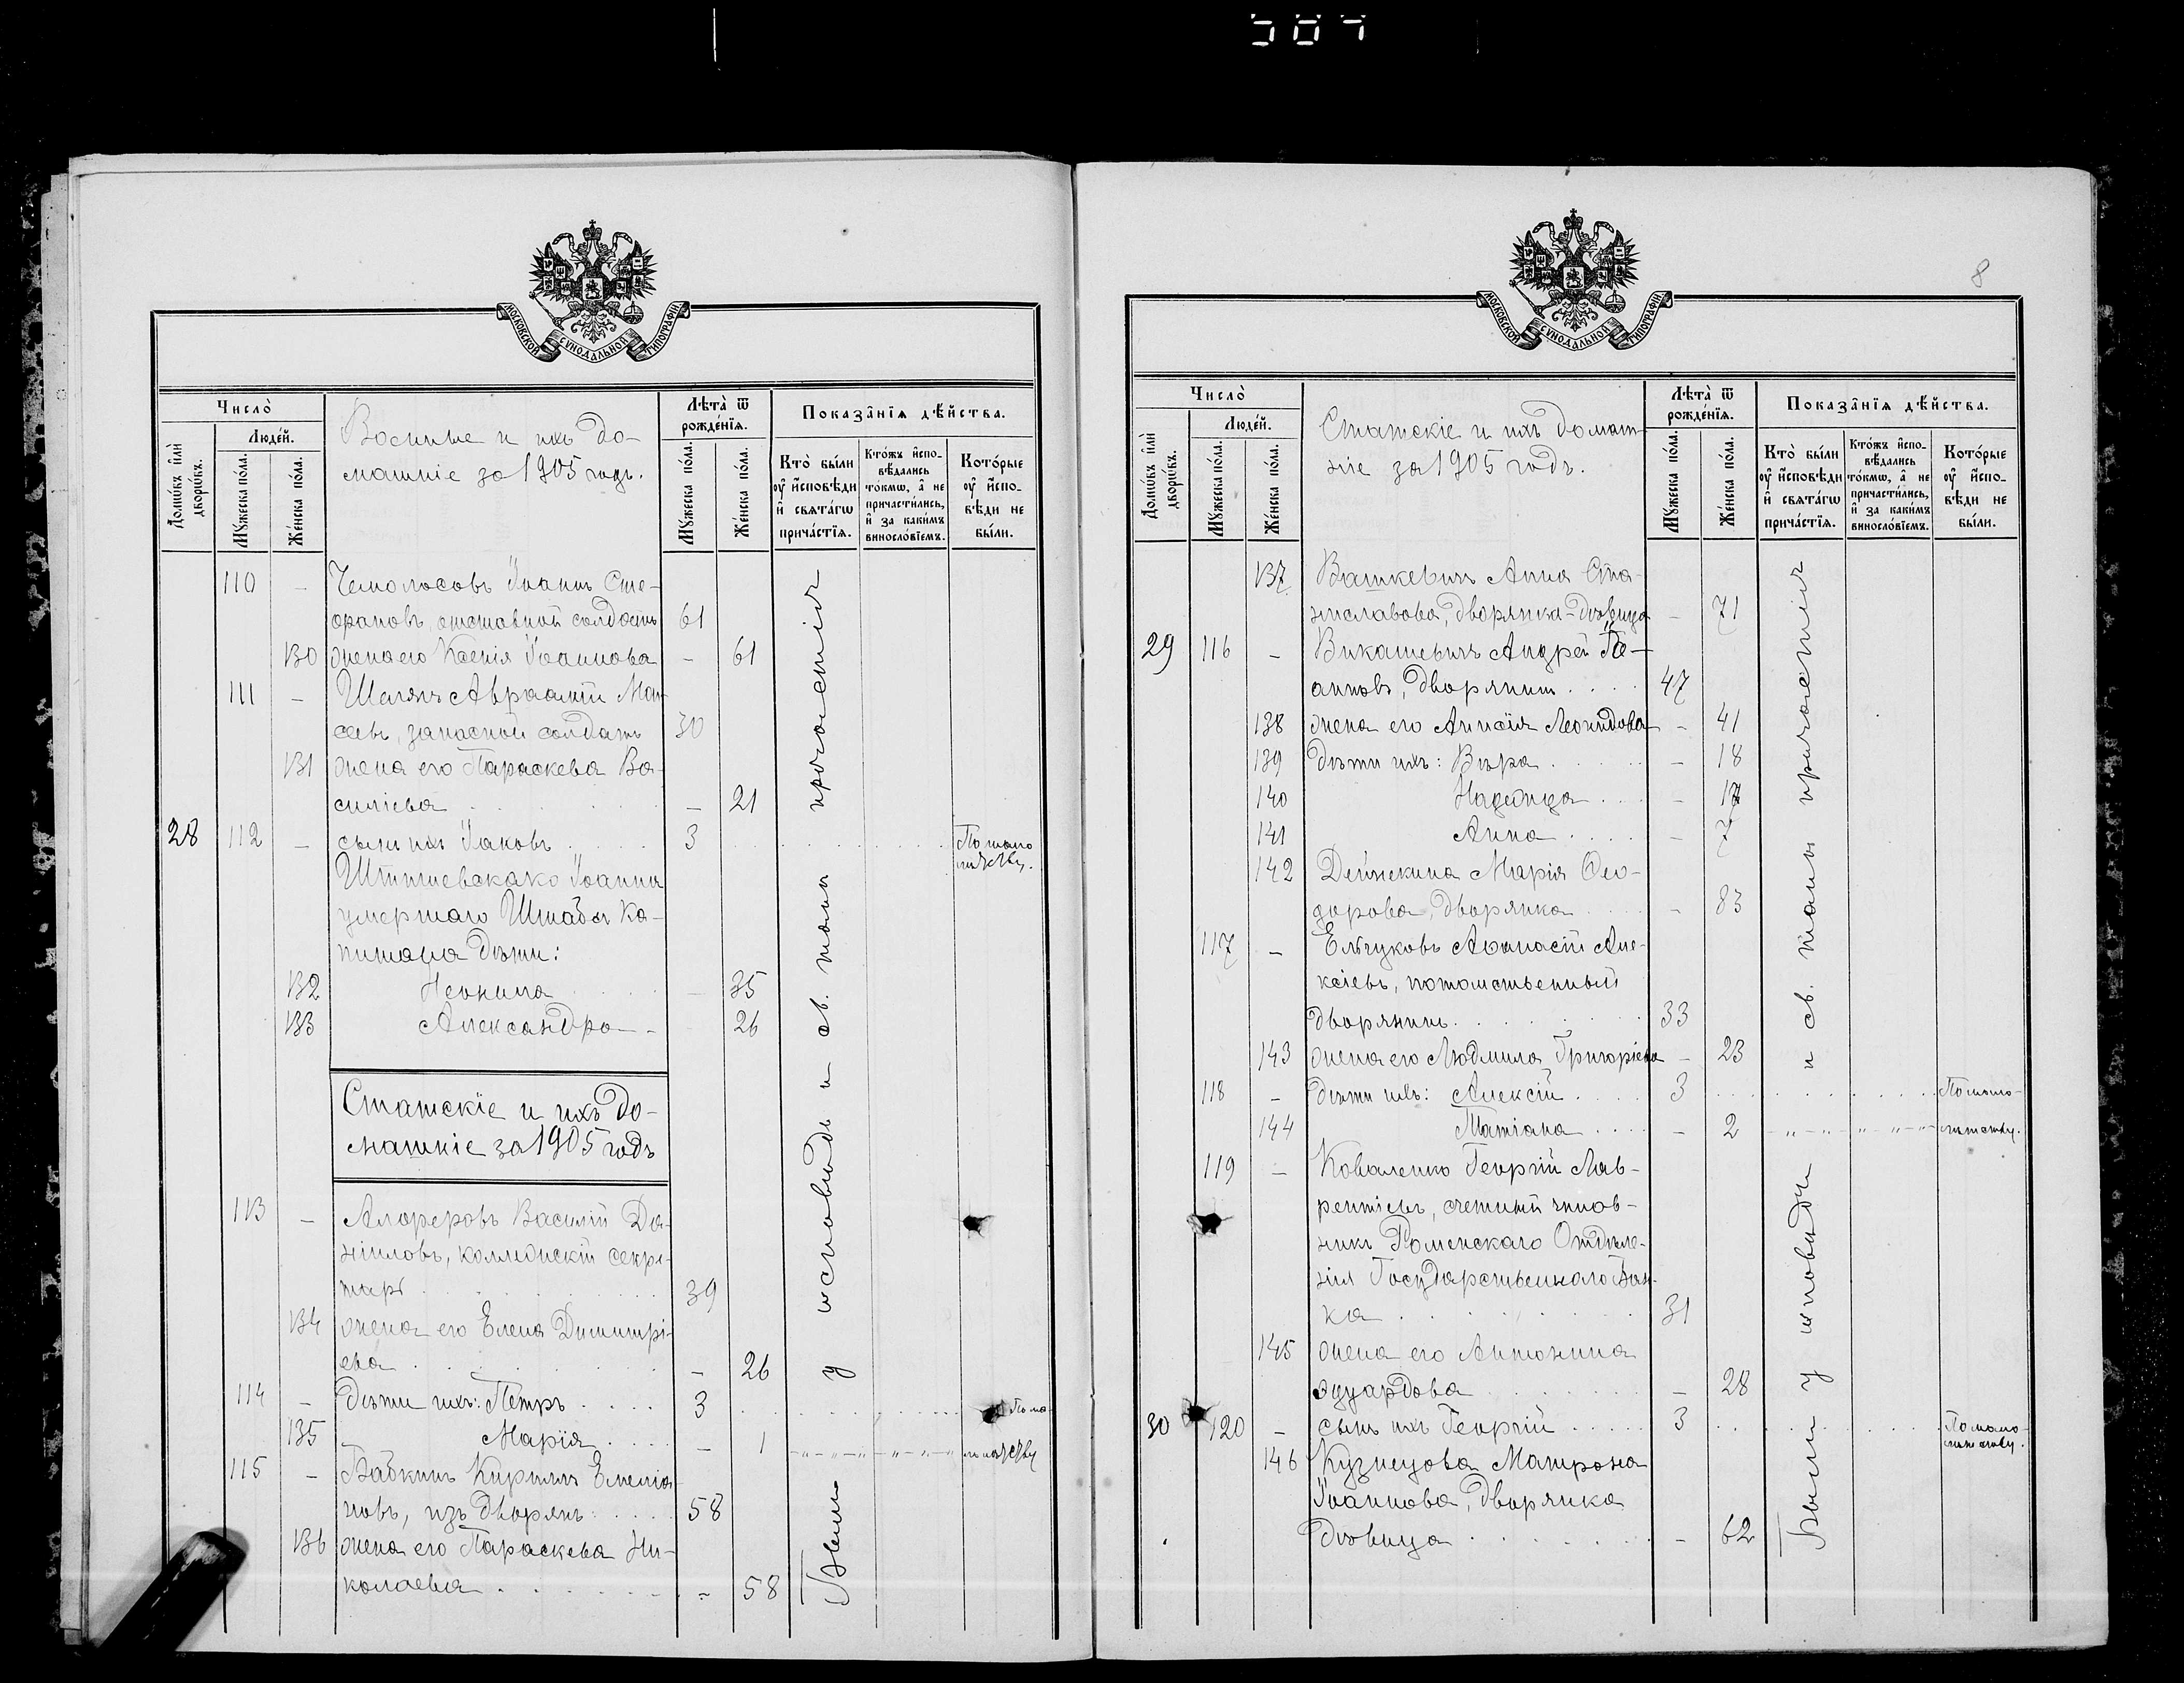 587
МОСКОВСКОЙ СѴНОДАЛЬНОЙ ТИПОГРАФІИ.
Число̀
Домѡ́въ и҆лѝ дворѡ́въ.
Люде́й.
Мꙋ́жеска по́ла.
Же́нска по́ла.
Военные и ихъ до-
машніе за 1905 годъ.
Лѣ́та ѿ рожде́нїѧ.
Мꙋ́жеска по́ла.
Же́нска по́ла.
Показа̑нїѧ дѣ́йства.
Кто̀ бы́ли ᲂу҆ и҆сповѣ́ди и҆ свѧта́гѡ прича́стїѧ.
Кто́жъ и҆спо-
вѣ́дались
то́кмѡ, а҆ не
причасти́лись,
и҆ за каки́мъ
винослѡ́вїемъ.
Кото́рые
ᲂу҆ и҆спо-
вѣ́ди не
бы́ли.
110 – Чемолосовъ Іоаннъ Сте-
фановъ, отставной солдатъ 61
130 жена его Ксенія Іоаннова – 61
111 – Шелягъ Авраамій Мои-
сеевъ, запасной солдатъ 30
131 жена его Параскева Ва-
силіева – 21
28 112 – сынъ ихъ Іаковъ 3 По мало
лѣтству.
Іоанна
умершаго Штабсъ Ка-
питана дѣти:
132 Неонила – 35
133 Александра – 26
Статскіе и ихъ до-
машніе за 1905 годъ
113 – Алферовъ Василій Да-
ніиловъ, коллежскій секре-
тарь 39
134 жена его Елена Димитрі-
ева – 26
114 – дѣти ихъ: Петръ 3 По ма-
135 Марія – 1 лолѣтству
115 – Бабкинъ Кириллъ Емеліа-
новъ, изъ дворянъ 58
136 жена его Параскева Ни-
колаева – 58
Были у исповѣди и св. тайнъ причастія
8
МОСКОВСКОЙ СѴНОДАЛЬНОЙ ТИПОГРАФІИ.
Число̀
Домѡ́въ и҆лѝ дворѡ́въ.
Люде́й.
Мꙋ́жеска по́ла.
Же́нска по́ла.
Статскіе и ихъ домаш-
ніе за 1905 годъ.
Лѣ́та ѿ рожде́нїѧ.
Мꙋ́жеска по́ла.
Же́нска по́ла.
Показа̑нїѧ дѣ́йства.
Кто̀ бы́ли ᲂу҆ и҆сповѣ́ди и҆ свѧта́гѡ прича́стїѧ.
Кто́жъ и҆спо-
вѣ́дались
то́кмѡ, а҆ не
причасти́лись,
и҆ за каки́мъ
винослѡ́вїемъ.
Кото́рые
ᲂу҆ и҆спо-
вѣ́ди не
бы́ли.
137 Вашкевичъ Анна Ста-
ниславова, дворянка-дѣвица – 71
29 116 – Викашевичъ Андрей Іо-
анновъ, дворянинъ 47
138 жена его Анисія Леонидова – 41
139 дѣти ихъ: Вѣра – 18
140 Надежда – 17
141 Анна – 7
142 Дейнекина Марія Ѳео-
дорова, дворянка – 83
117 – Елчуковъ Аѳанасій Але-
ксіевъ, потомственный
дворянинъ 33
143 жена его Людмила Григоріева – 23
118 – дѣти ихъ: Алексій 3 По мало-
144 Татіана – 2 лѣтству.
119 – Коваленко Георгій Лав-
рентіевъ, счетный чинов-
никъ Роменскаго Отдѣле-
нія Государственнаго Бан-
ка 31
145 жена его Антонина
Эдуардова – 28
30 120 – сынъ ихъ Георгій 3 По мало-
лѣтству.
146 Кузнецова Матрона
Іоаннова, дворянка
дѣвица – 62
Были у исповѣди и св. тайнъ причастія